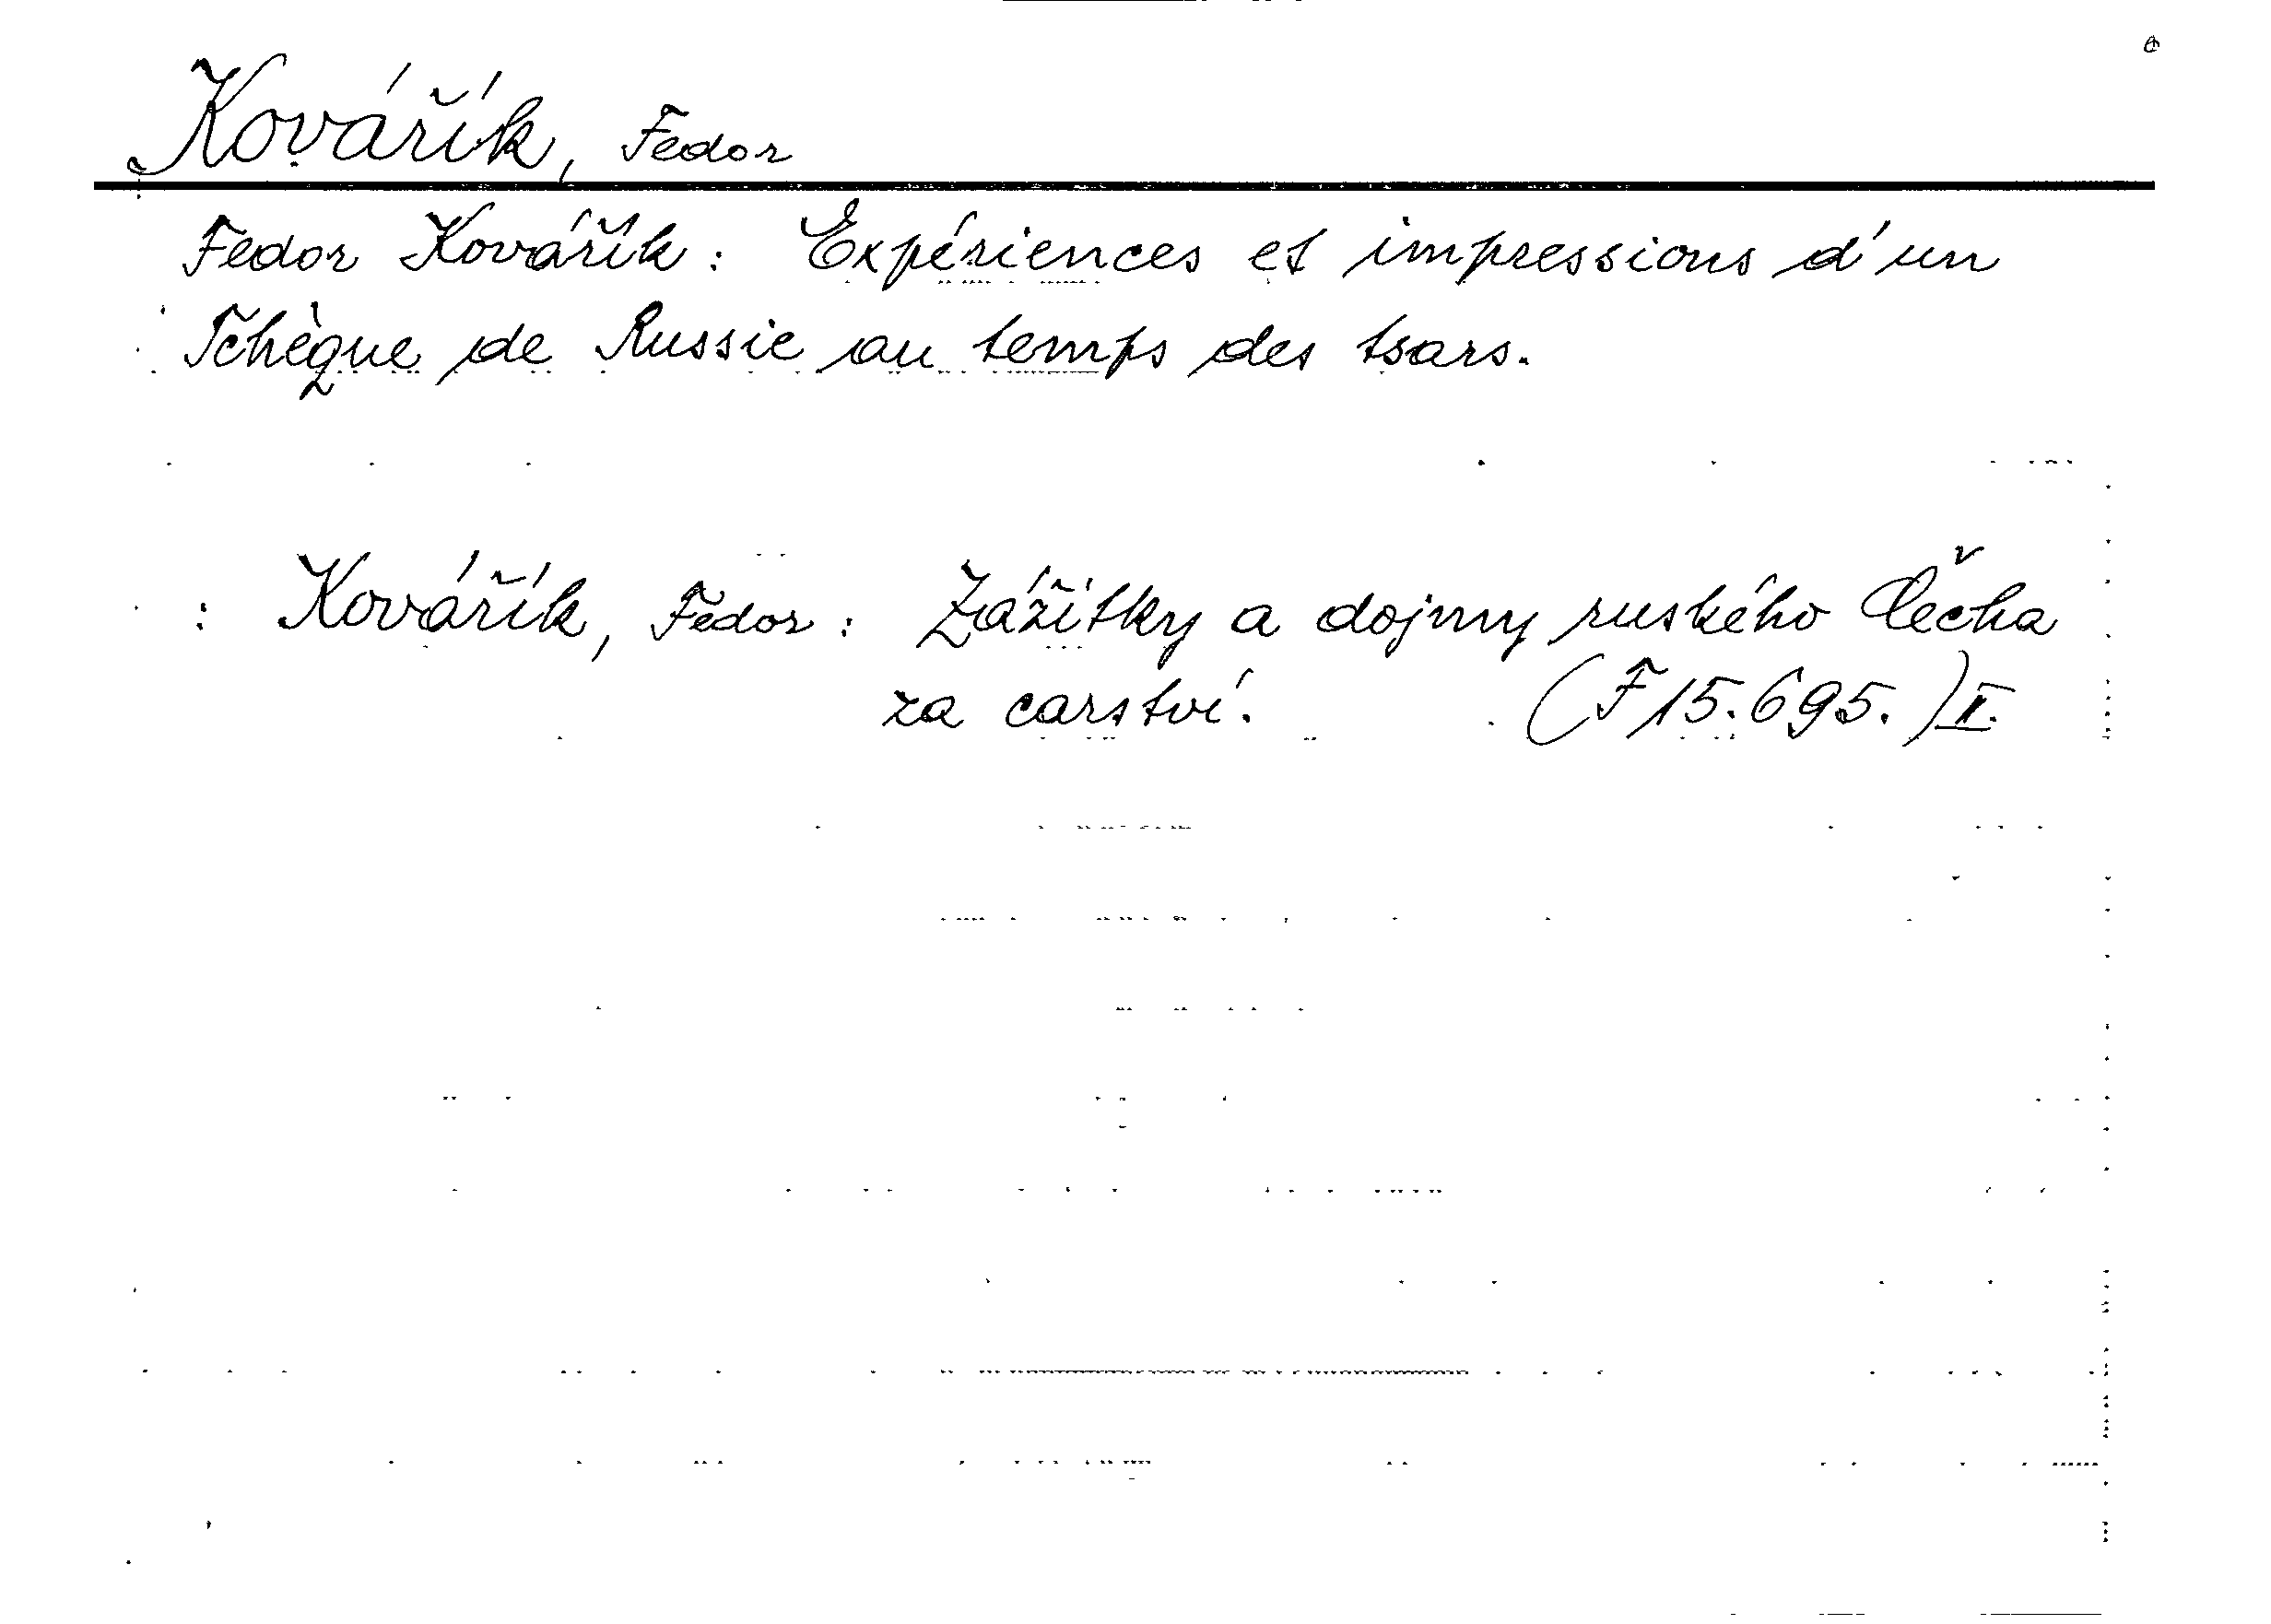 Kovářík, Fedor
Fedor Kovářík: Expériences et impressions d'un
Tchèque de Russie au temps des tsars.
: Kovářík, Fedor: Zážitky a dojmy ruského Čecha
za carství. (F 15.695.) II.